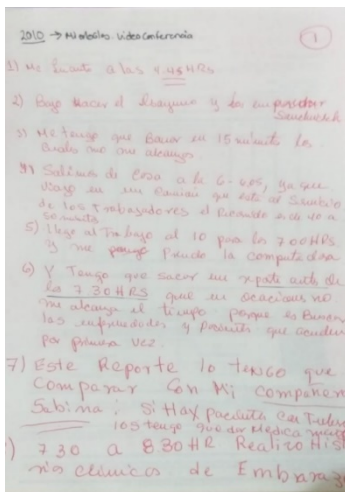 2010 → Miercoles. Video Conferencia
1
1) Me levanto a las 4.45 HRS
2) Bajo Hacer el Desayuno y los emparedar
Sandwich
3) Me tengo que Bañar en 15 minutos los
cuales no me alcanzo.
4) Salimos de Casa a la 6-6.05, ya que
viajo en un camion que esta al Servicio
de los Trabajadores el Recorrido es de 40 a
50 minutos
5) Llego al Trabajo al 10 para las 7 00 HRS
y me pongo Prendo la computadora
6) Y Tengo que sacar un reporte antes de
las 7.30 HRS que en ocaciones no
me alcanza el tiempo porque es Buscar
las enfermedades y Pacientes que acuden
por primera vez.
7) Este Reporte lo tengo que
Comparar Con Mi compañera
Sabina; Si Hay pacientes con
los tengo que dar Médica
) 7 30 a 8.30 HR Realizo His
rias clinicas de Embaraz